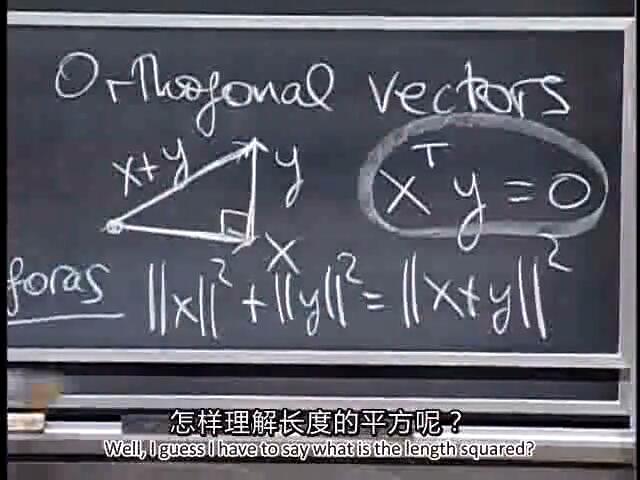 Orthogonal vectors
x+y
y
xᵀy = 0
x
goras ||x||² + ||y||² = ||x+y||²
怎样理解长度的平方呢？
Well, I guess I have to say what is the length squared?